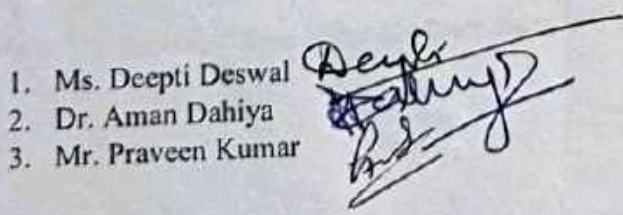 1. Ms. Deepti Deswal
2. Dr. Aman Dahiya
3. Mr. Praveen Kumar